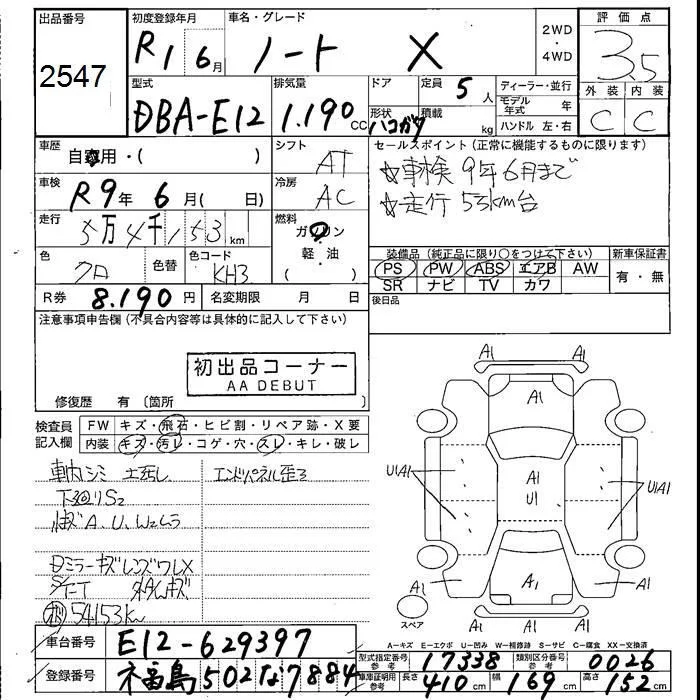 出品番号 2547
初度登録年月 R1 6月
車名・グレード ノート X
2WD・4WD
評価点 3.5
外装 C 内装 C
型式 DBA-E12
排気量 1.190 CC
ドア 形状 ハコガタ
定員 5人
積載 kg
ディーラー・並行
モデル年式 年
ハンドル 左・右
車歴 自家用・( )
シフト AT
セールスポイント(正常に機能するものに限ります)
☆車検 9年6月まで
☆走行 53km台
車検 R9年 6月( 日)
冷房 AC
走行 5万4千153km
燃料 ガソリン 軽・油 ( )
色 クロ 色替 色コード KH3
装備品(純正品に限り〇をつけて下さい) 新車保証書
PS PW ABS エアB AW 有・無
SR ナビ TV カワ
R券 8.190円 名変期限 月 日
後日品
注意事項申告欄(不具合内容等は具体的に記入して下さい)
初出品コーナー
AA DEBUT
修復歴 有〔箇所
検査員記入欄
FW キズ・飛石・ヒビ割・リペア跡・X要
内装 キズ・汚レ・コゲ・穴・スレ・キレ・破レ
車内シミ 土汚レ エンドパネル歪ミ
下廻りS2
小キズ A、U、W2しう
ミラーキズ レンズワレX
シート
54153Km
A1 A1
A1
A1 A1
U1A1 A1 U1 U1A1
A1 A1 A1
スペア
A1 A1
A−キズ E−エクボ U−凹み W−補修跡 S−サビ C−腐食 XX−交換済
車台番号 E12-629397
型式指定番号 参考 17338 類別区分番号 参考 0026
登録番号 福島502な7884
車庫証明用 参考 長さ 410cm 幅 169cm 高さ 152cm